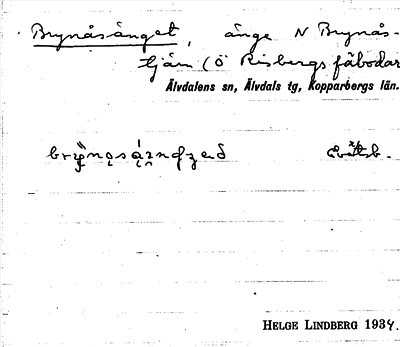 Brynåsänget, änge N Brynås-
tjärn (Ö Risbergs fäbodar
Älvdalens sn, Älvdals tg, Kopparbergs län.
HELGE LINDBERG 1934.